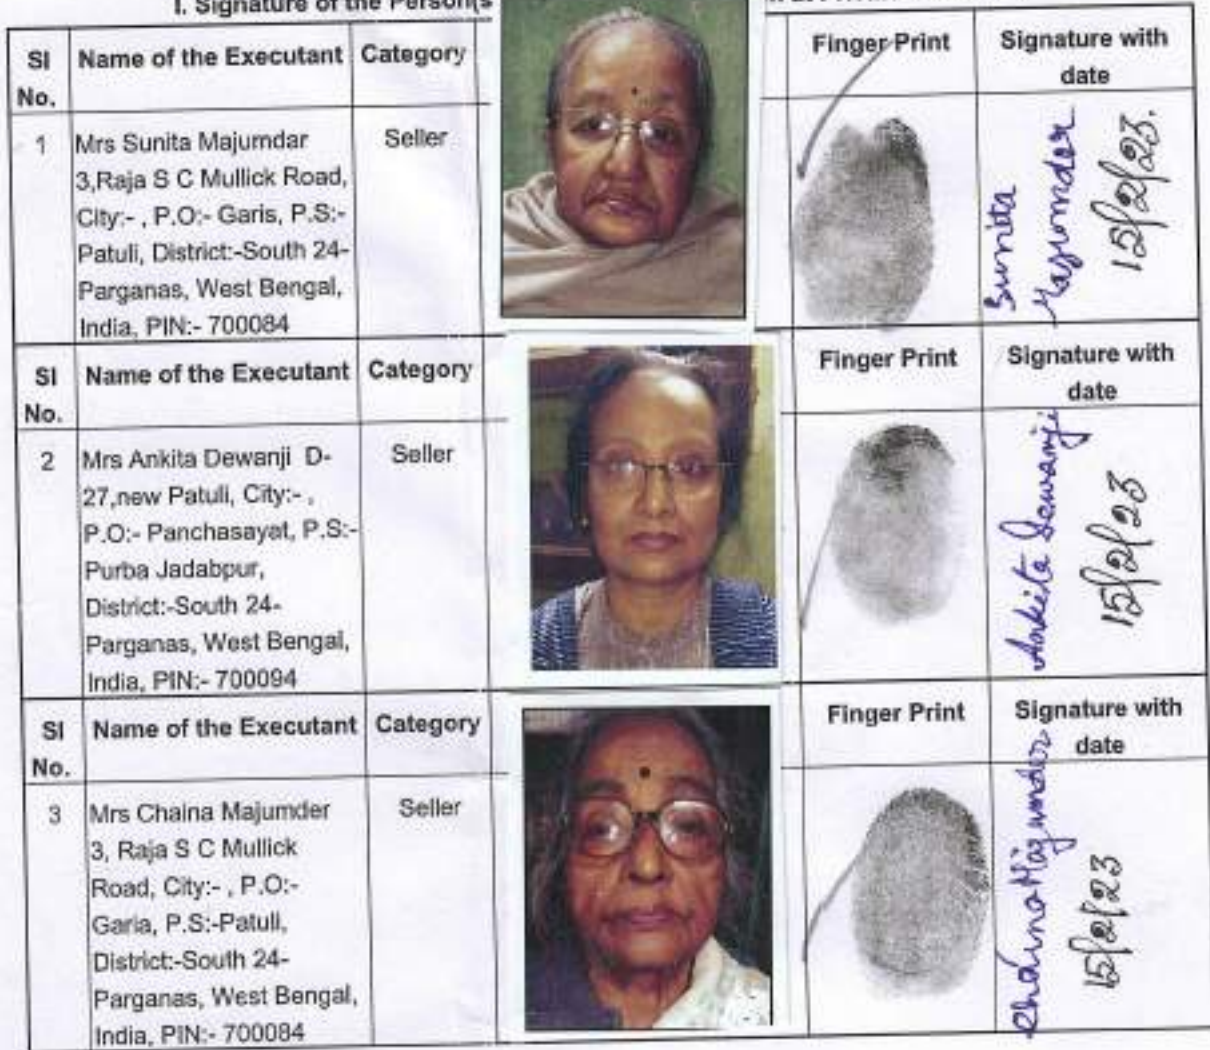 I. Signature of the Person(s
SI No. Name of the Executant Category Finger Print Signature with date
1 Mrs Sunita Majumdar Seller
3,Raja S C Mullick Road,
City:- , P.O:- Garis, P.S:-
Patuli, District:-South 24-
Parganas, West Bengal,
India, PIN:- 700084
Sunita
Majumdar
15/2/23.
SI No. Name of the Executant Category Finger Print Signature with date
2 Mrs Ankita Dewanji D- Seller
27,new Patuli, City:- ,
P.O:- Panchasayat, P.S:-
Purba Jadabpur,
District:-South 24-
Parganas, West Bengal,
India, PIN:- 700094
Ankita Dewanji
15/2/23
SI No. Name of the Executant Category Finger Print Signature with date
3 Mrs Chaina Majumder Seller
3, Raja S C Mullick
Road, City:- , P.O:-
Garia, P.S:-Patuli,
District:-South 24-
Parganas, West Bengal,
India, PIN:- 700084
Chaina Majumder
15/2/23